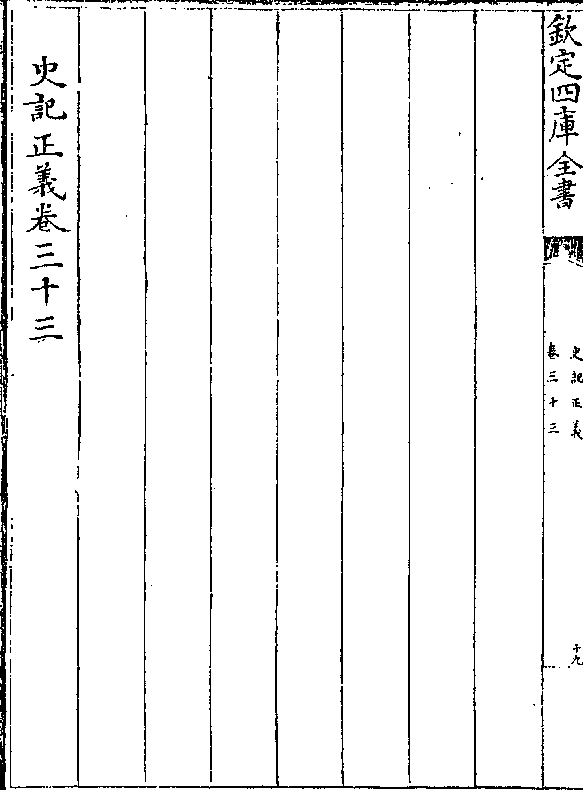 欽定四庫全書
史記正義
卷三十三
十九
史記正義卷三十三